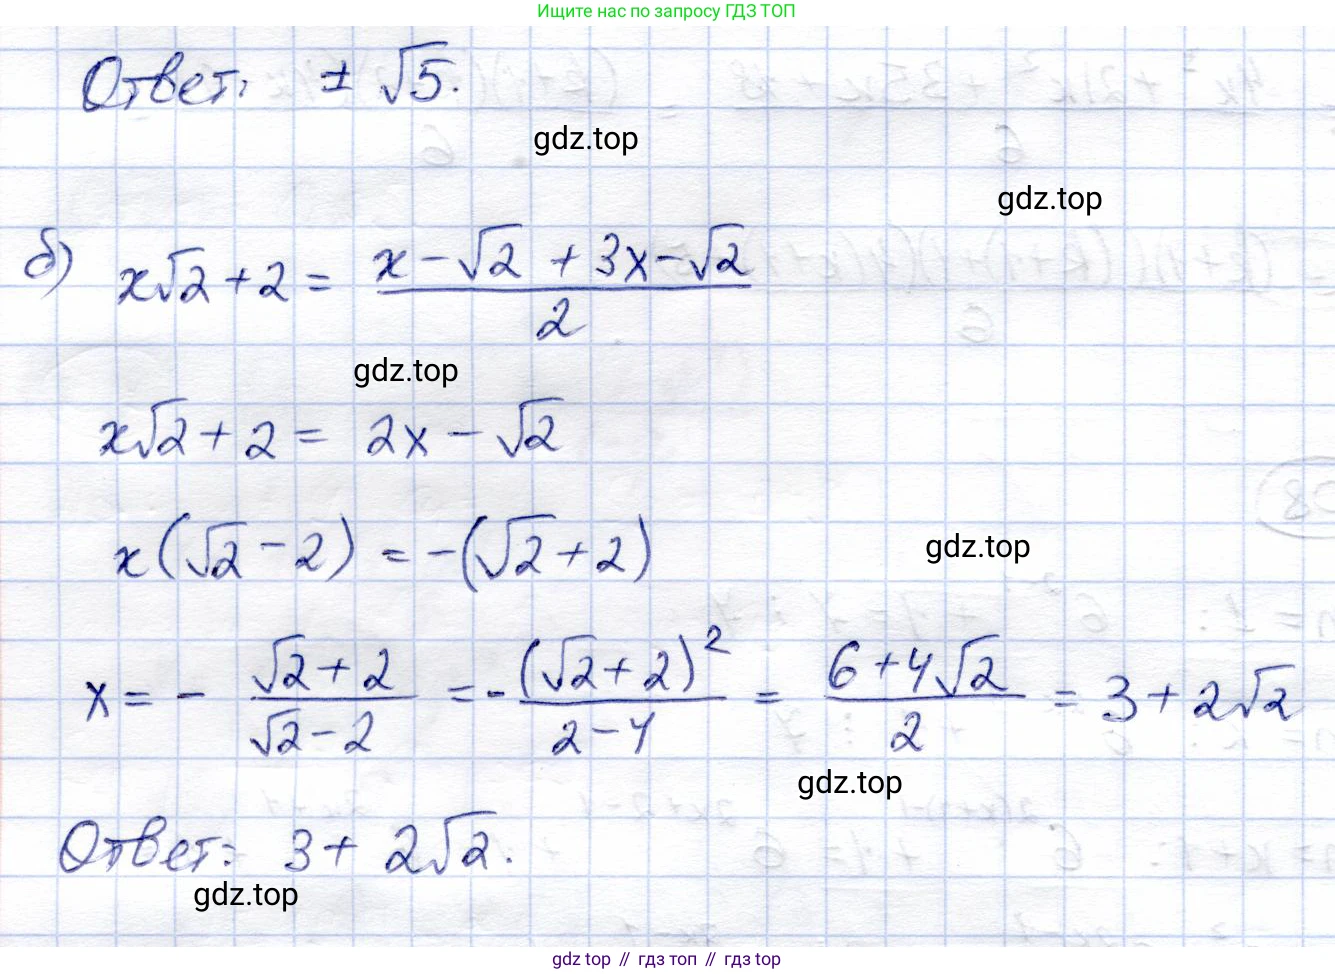 Ищите нас по запросу ГДЗ ТОП
Ответ: ± √5.
gdz.top
gdz.top
б) x√2 + 2 = (x - √2 + 3x - √2) / 2
gdz.top
x√2 + 2 = 2x - √2
x(√2 - 2) = -(√2 + 2)
gdz.top
x = - (√2 + 2) / (√2 - 2) = - (√2 + 2)² / (2 - 4) = (6 + 4√2) / 2 = 3 + 2√2
gdz.top
Ответ: 3 + 2√2.
gdz.top
gdz top // гдз топ // gdz top